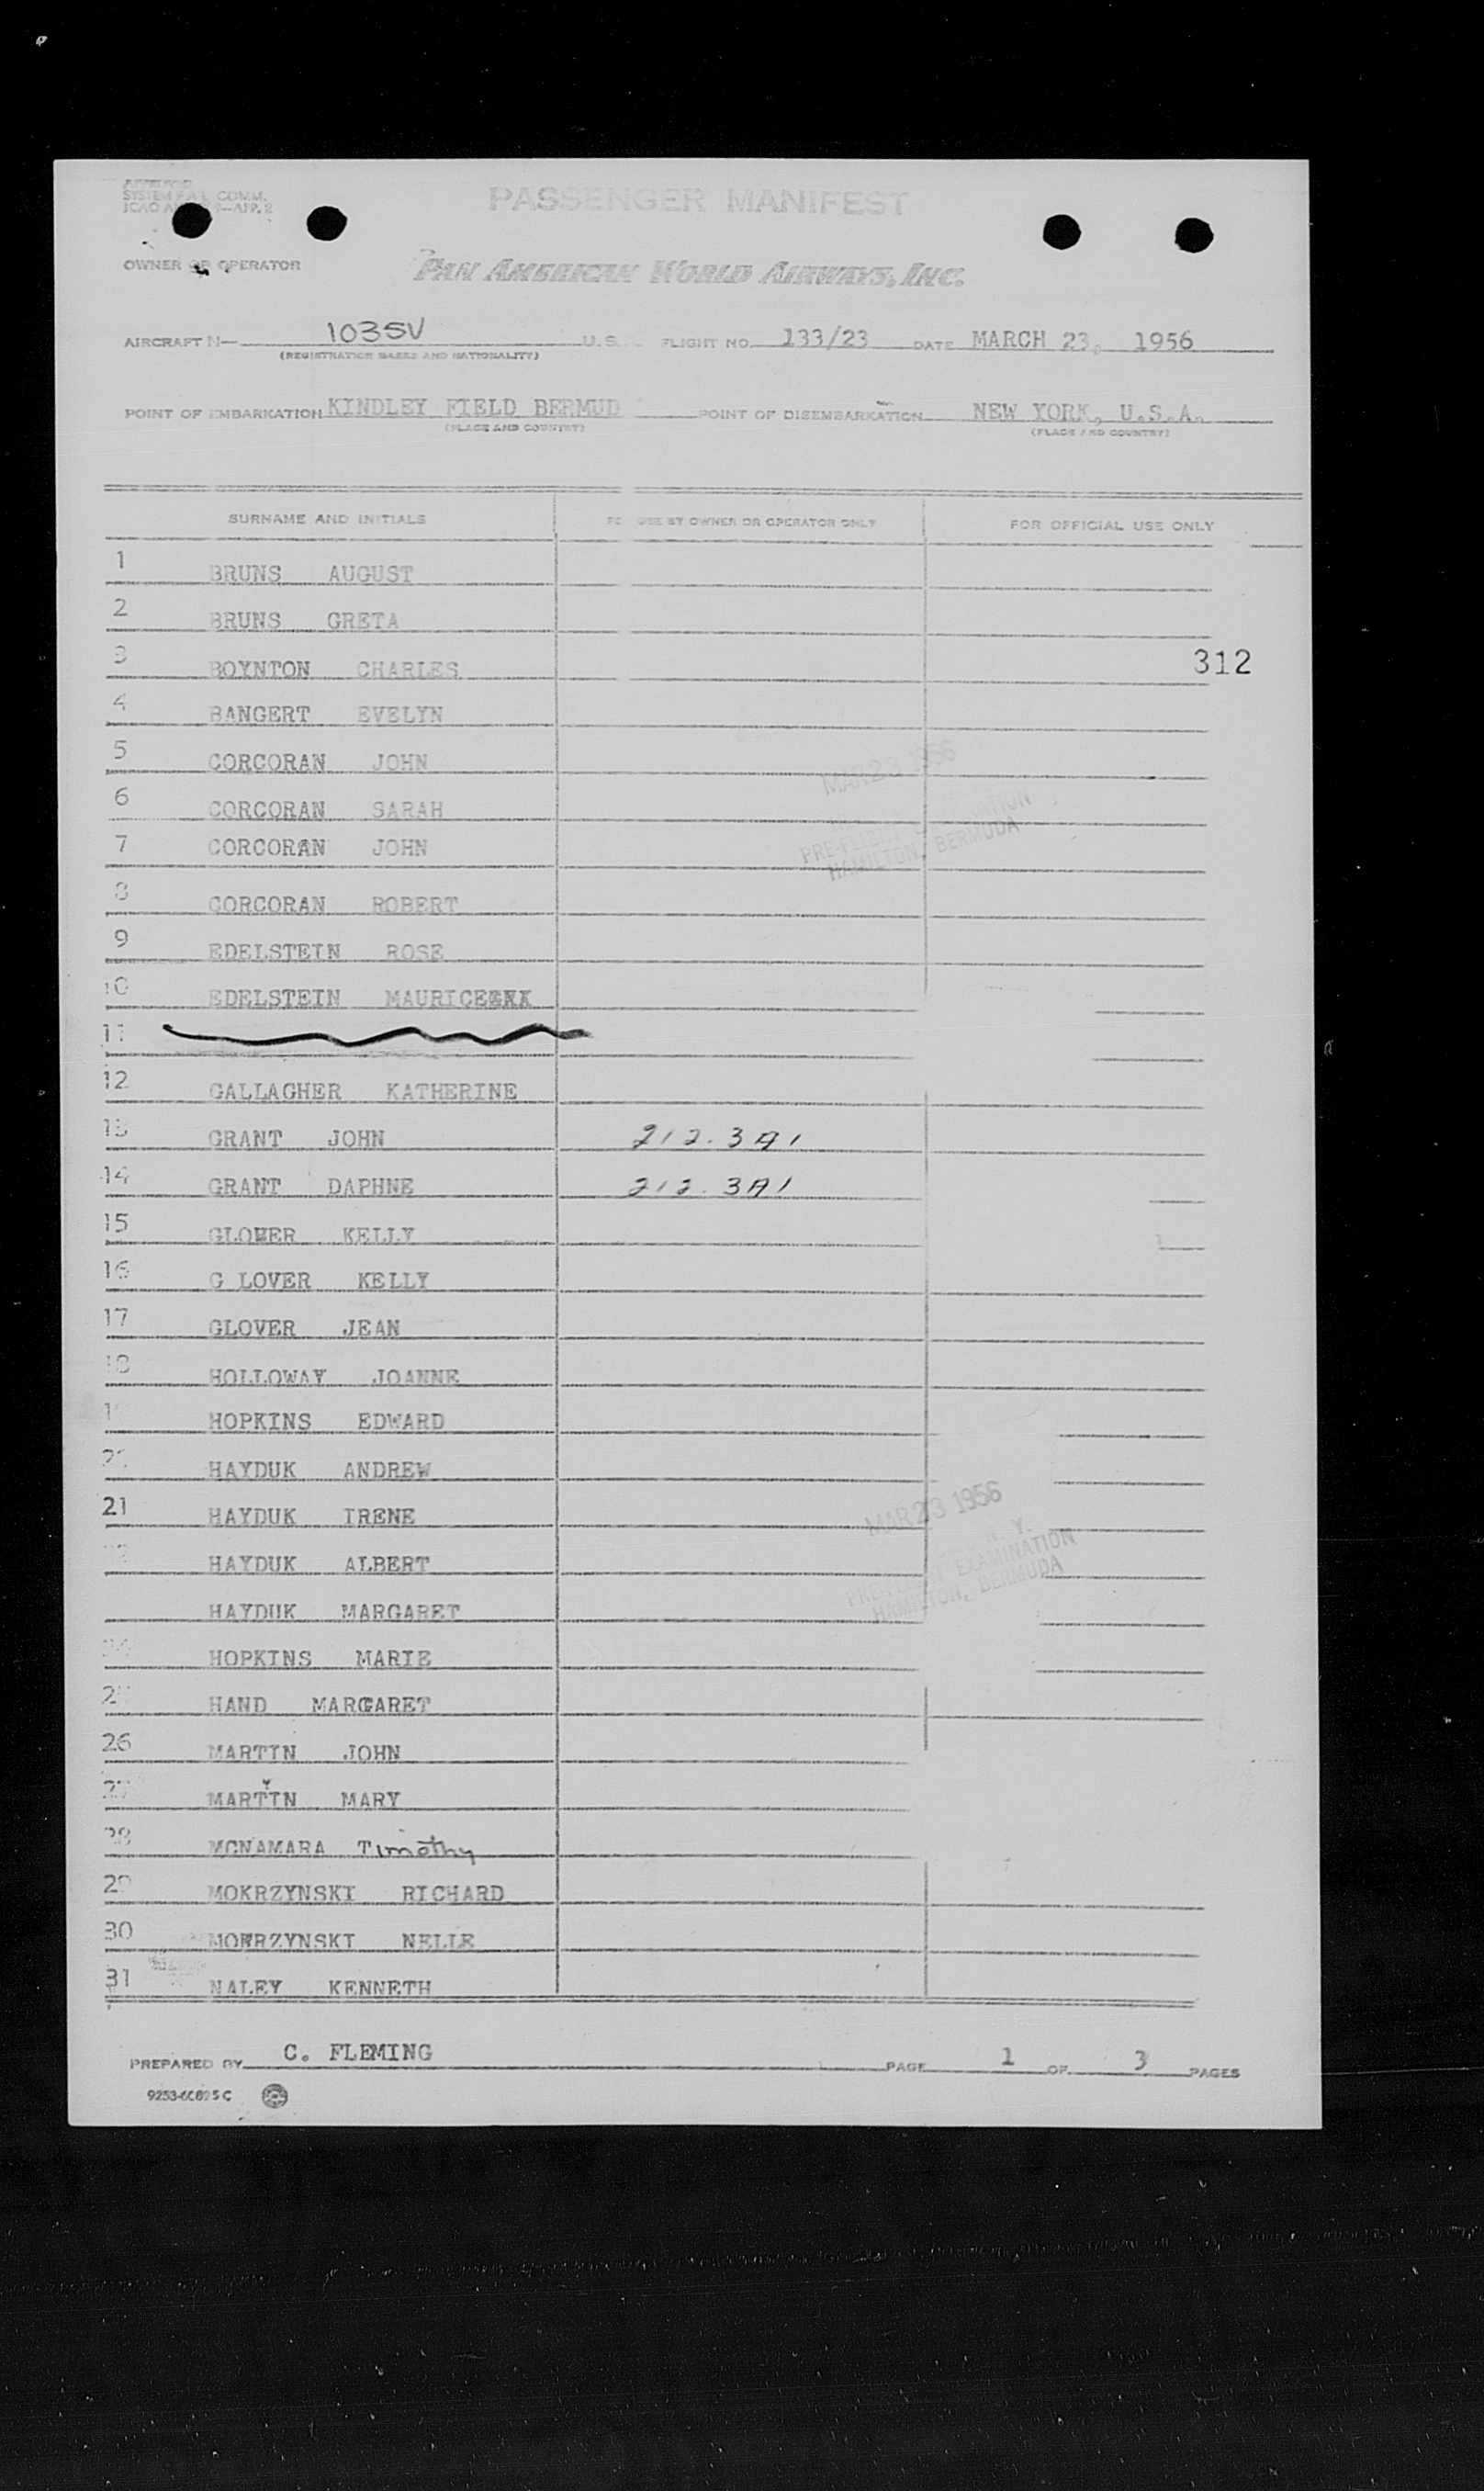 APPROVED
SYSTEM COMM.
ICAO APP. 2
PASSENGER MANIFEST
OWNER OR OPERATOR PAN AMERICAN WORLD AIRWAYS, INC.
AIRCRAFT N— 1035V U.S. FLIGHT NO. 133/23 DATE MARCH 23, 1956
(REGISTRATION MARKS AND NATIONALITY)
POINT OF EMBARKATION KINDLEY FIELD BERMUD POINT OF DISEMBARKATION NEW YORK, U.S.A.
(PLACE AND COUNTRY) (PLACE AND COUNTRY)
SURNAME AND INITIALS USE BY OWNER OR OPERATOR ONLY FOR OFFICIAL USE ONLY
1 BRUNS AUGUST
2 BRUNS GRETA
3 BOYNTON CHARLES 312
4 BANGERT EVELYN
5 CORCORAN JOHN
MAR 23 1956
6 CORCORAN SARAH
7 CORCORAN JOHN
PRE-FLIGHT EXAMINATION
HAMILTON, BERMUDA
8 CORCORAN ROBERT
9 EDELSTEIN ROSE
10 EDELSTEIN MAURICE
11
12 GALLAGHER KATHERINE
13 GRANT JOHN 212.3A1
14 GRANT DAPHNE 212.3A1
15 GLOVER KELLY
16 G LOVER KELLY
17 GLOVER JEAN
18 HOLLOWAY JOANNE
1 HOPKINS EDWARD
2 HAYDUK ANDREW
21 HAYDUK IRENE
MAR 23 1956
HAYDUK ALBERT
N. Y.
PRE-FLIGHT EXAMINATION
HAMILTON, BERMUDA
HAYDUK MARGARET
24 HOPKINS MARIE
25 HAND MARGARET
26 MARTIN JOHN
27 MARTIN MARY
28 MCNAMARA Timothy
29 MOKRZYNSKI RICHARD
30 MOKRZYNSKI NELLE
31 NALEY KENNETH
PREPARED BY C. FLEMING PAGE 1 OF 3 PAGES